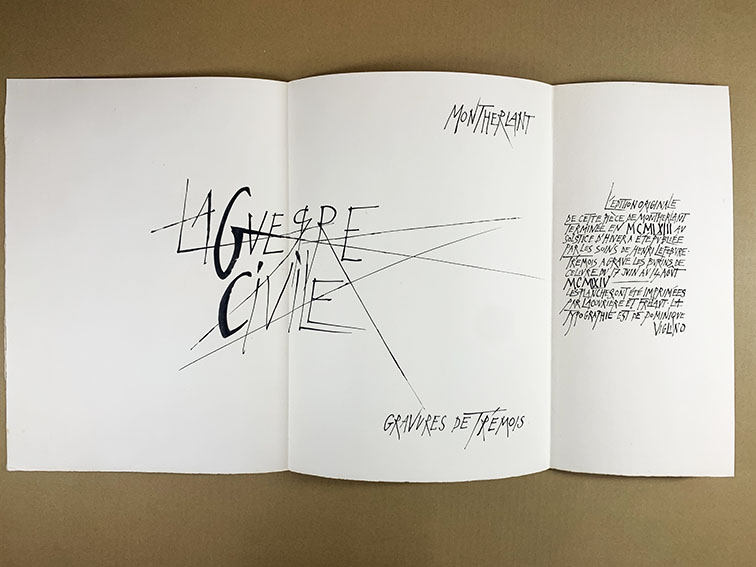 MONTHERLANT
LA GUERRE
CIVILE
GRAVURES DE TRÉMOIS
L'EDITION ORIGINALE
DE CETTE PIÈCE DE MONTHERLANT
TERMINÉE EN MCMLXIII AU
SOLSTICE D'HIVER A ÉTÉ PUBLIÉE
PAR LES SOINS DE HENRI LEFEBVRE.
TREMOIS A GRAVÉ LES BURINS DE
L'ŒUVRE DU 17 JUIN AU 14 AOUT
MCMLXIV
LES PLANCHES ONT ÉTÉ IMPRIMÉES
PAR LACOURIERE ET FRELAUT. LA
TYPOGRAPHIE EST DE DOMINIQUE
VIGLINO